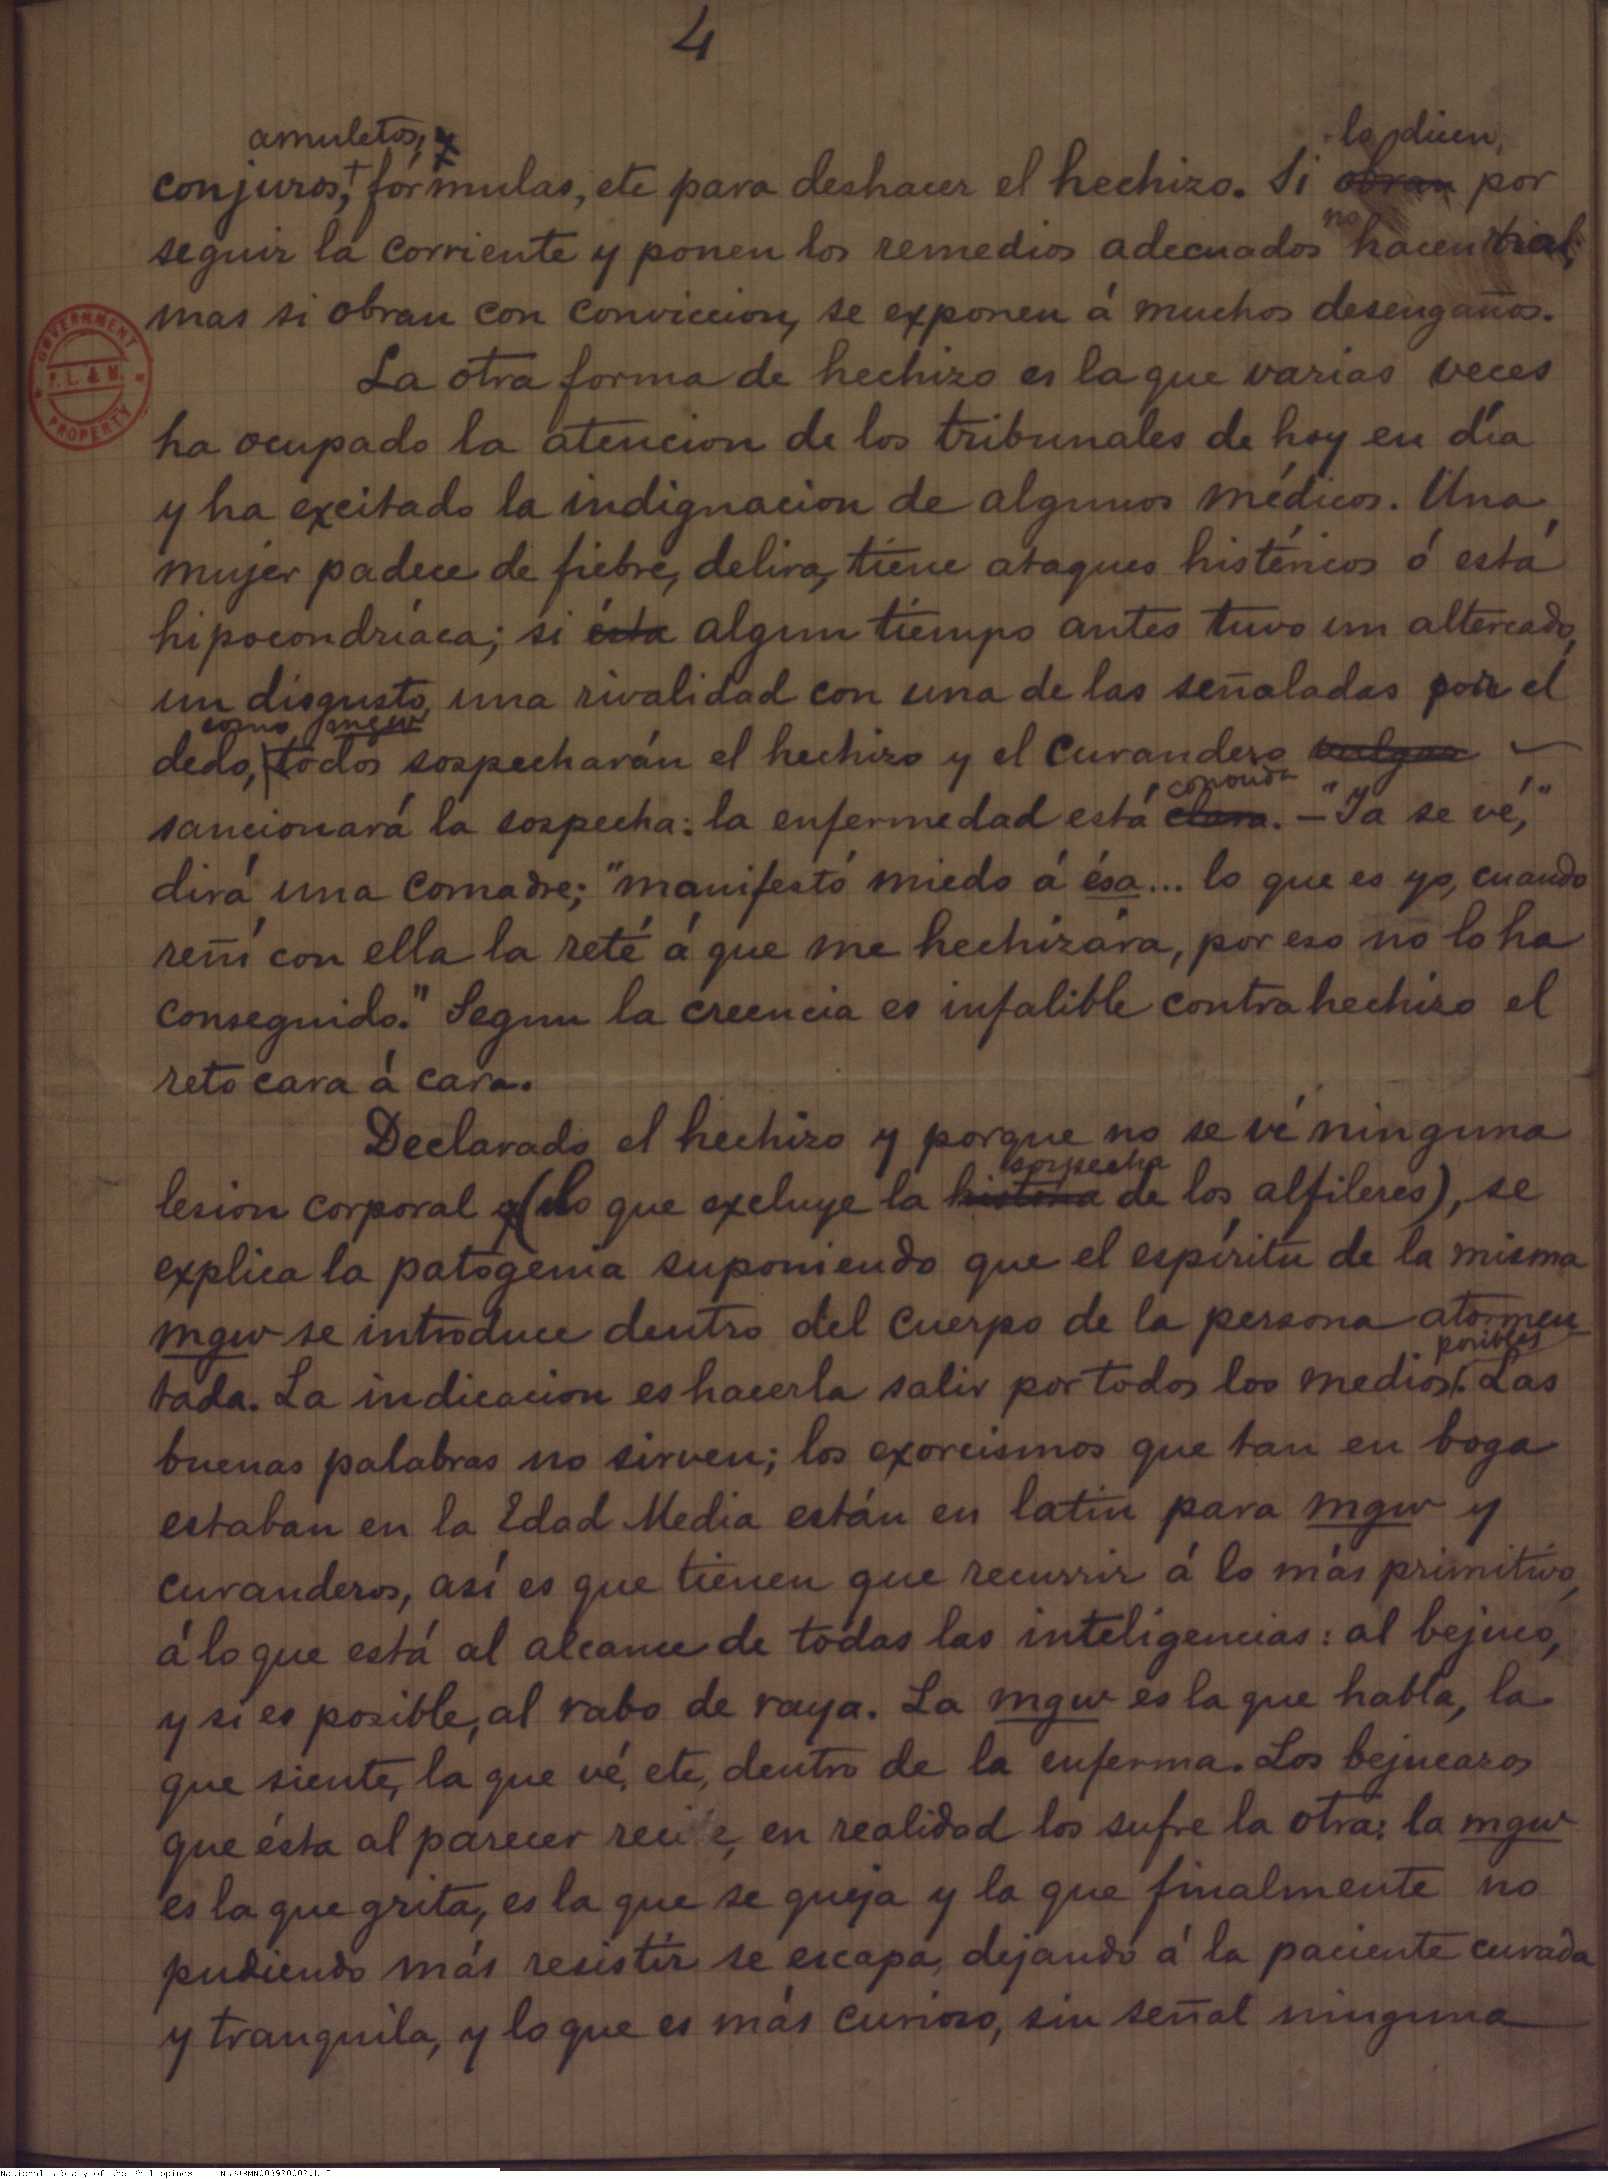 4
amuletos, y lo dicen,
conjuros, fórmulas, etc para deshacer el hechizo. Si obran por
seguir la corriente y ponen los remedios adecuados no hacen mal;
mas si obran con conviccion, se exponen á muchos desengaños.
La otra forma de hechizo es la que varias veces
ha ocupado la atencion de los tribunales de hoy en día
y ha excitado la indignacion de algunos médicos. Una
mujer padece de fiebre, delira, tiene ataques histéricos ó está
hipocondríaca; si ésta algun tiempo antes tuvo un altercado,
un disgusto, una rivalidad con una de las señaladas por el
como mgw
dedo, todos sospecharán el hechizo y el curandero vulgar
conocida
sancionará la sospecha: la enfermedad está clara. — "Ya se vé,"
dirá una comadre; "manifestó miedo á ésa... lo que es yo, cuando
reñí con ella la reté á que me hechizára, por eso no lo ha
conseguido." Segun la creencia es infalible contrahechizo el
reto cara á cara.
Declarado el hechizo y porque no se vé ninguna
sospecha
lesion corporal (lo que excluye la historia de los alfileres), se
explica la patogenia suponiendo que el espíritu de la misma
mgw se introduce dentro del cuerpo de la persona atormen
posibles
tada. La indicacion es hacerla salir por todos los medios. Las
buenas palabras no sirven; los exorcismos que tan en boga
estaban en la Edad Media están en latin para mgw y
curanderos, así es que tienen que recurrir á lo más primitivo,
á lo que está al alcance de todas las inteligencias: al bejuco,
y si es posible, al rabo de raya. La mgw es la que habla, la
que siente, la que vé, etc, dentro de la enferma. Los bejucazos
que ésta al parecer recibe, en realidad los sufre la otra: la mgw
es la que grita, es la que se queja y la que finalmente no
pudiendo más resistir se escapa, dejando á la paciente curada
y tranquila, y lo que es más curioso, sin señal ninguna
GOVERNMENT
P. L. & M.
PROPERTY
National Library of the Philippines